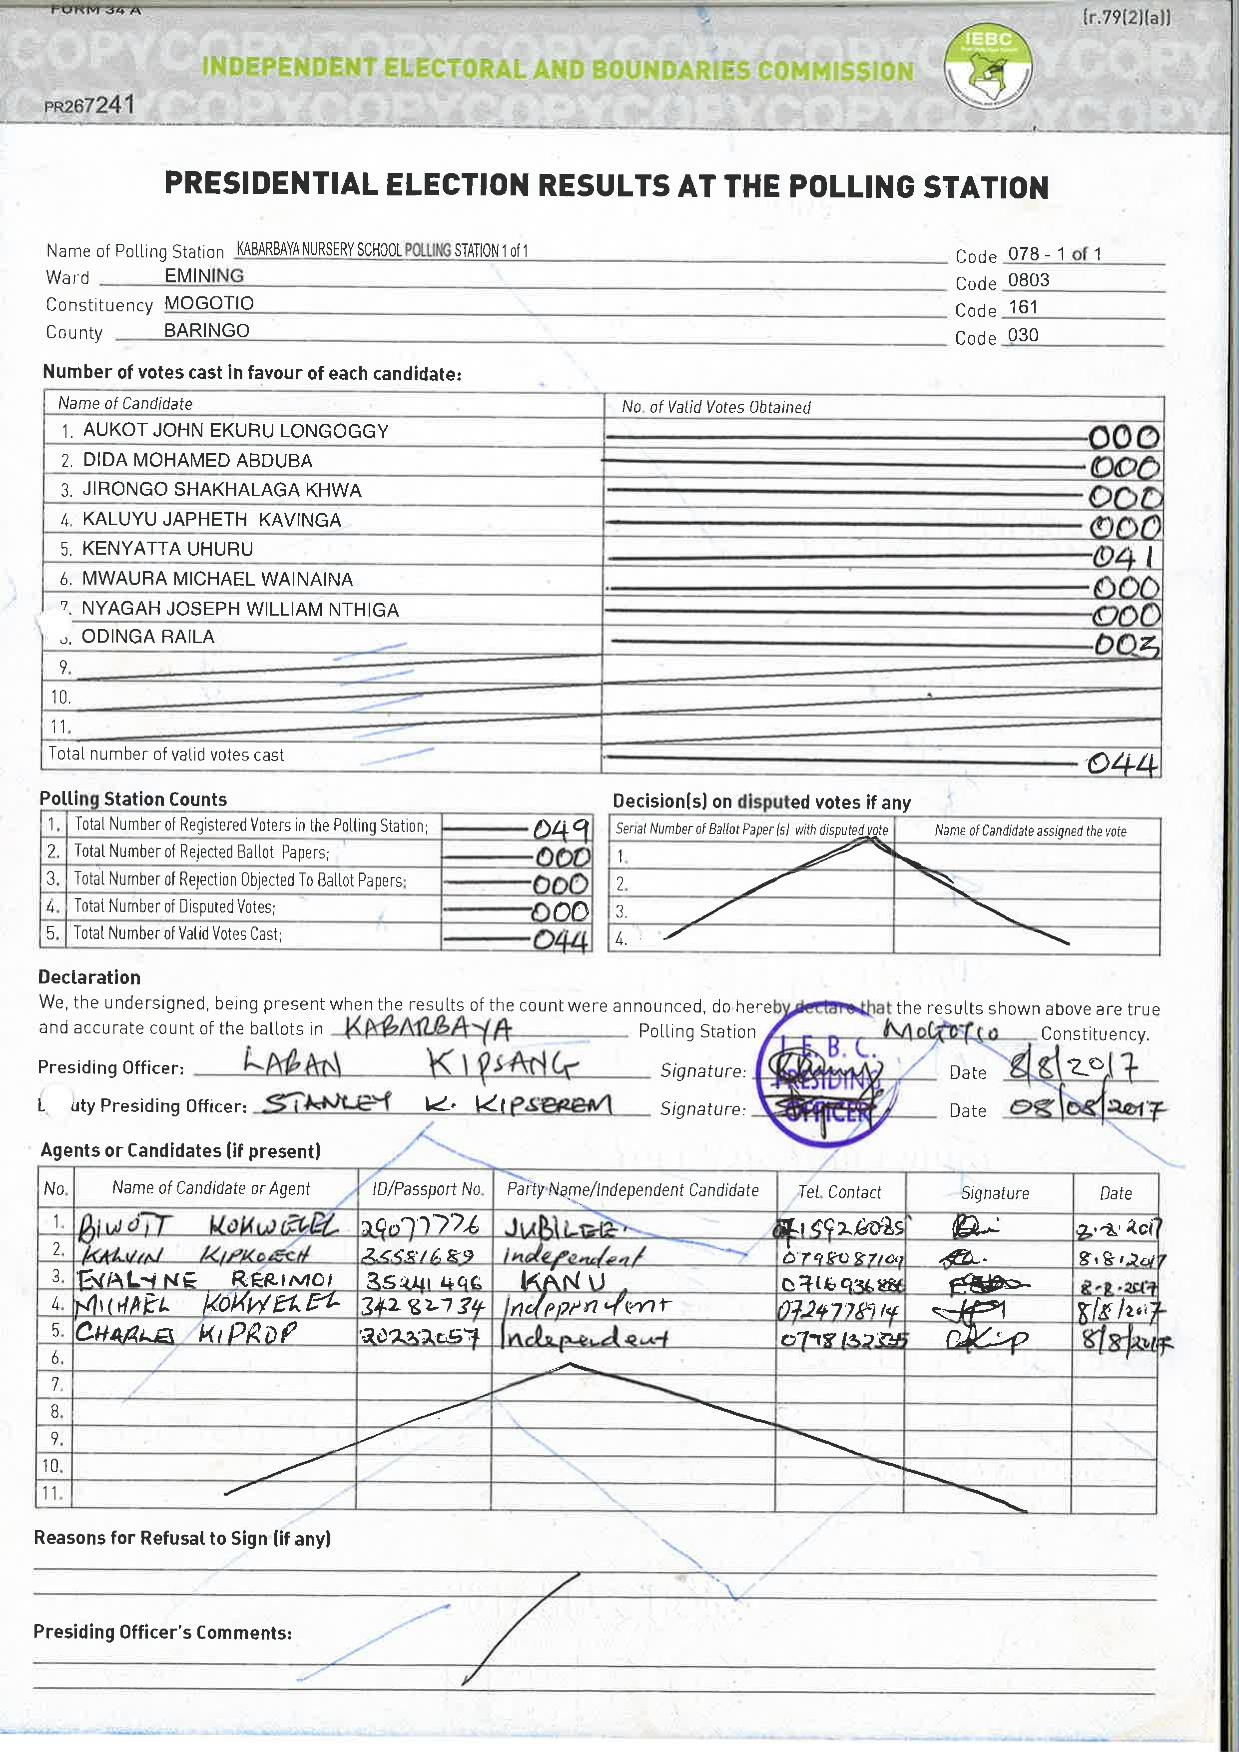 FORM 34 A
[r.79(2)(a)]
INDEPENDENT ELECTORAL AND BOUNDARIES COMMISSION
IEBC
PR267241
PRESIDENTIAL ELECTION RESULTS AT THE POLLING STATION
Name of Polling Station KABARBAYA NURSERY SCHOOL POLLING STATION 1 of 1 Code 078 - 1 of 1
Ward EMINING Code 0803
Constituency MOGOTIO Code 161
County BARINGO Code 030
Number of votes cast in favour of each candidate:
Name of Candidate No. of Valid Votes Obtained
1. AUKOT JOHN EKURU LONGOGGY 000
2. DIDA MOHAMED ABDUBA 000
3. JIRONGO SHAKHALAGA KHWA 000
4. KALUYU JAPHETH KAVINGA 000
5. KENYATTA UHURU 041
6. MWAURA MICHAEL WAINAINA 000
7. NYAGAH JOSEPH WILLIAM NTHIGA 000
ODINGA RAILA 003
9.
10.
11.
Total number of valid votes cast 044
Polling Station Counts
1. Total Number of Registered Voters in the Polling Station; 049
2. Total Number of Rejected Ballot Papers; 000
3. Total Number of Rejection Objected To Ballot Papers; 000
4. Total Number of Disputed Votes; 000
5. Total Number of Valid Votes Cast; 044
Decision(s) on disputed votes if any
Serial Number of Ballot Paper (s) with disputed vote Name of Candidate assigned the vote
1.
2.
3.
4.
Declaration
We, the undersigned, being present when the results of the count were announced, do hereby declare that the results shown above are true
and accurate count of the ballots in KABARBAYA Polling Station MOGOTIO Constituency.
I.E.B.C.
PRESIDING
OFFICER
Presiding Officer: LABAN KIPSANG Signature: Date 8/8/2017
uty Presiding Officer: STANLEY K. KIPSEREM Signature: Date 08/08/2017
Agents or Candidates (if present)
No. Name of Candidate or Agent ID/Passport No. Party Name/Independent Candidate Tel. Contact Signature Date
1. BIWOTT KOKWELEL 29077776 JUBILEE 0715926085 8.8.2017
2. KALVIN KIPKOECH 35581689 independent 0798087109 8.8.2017
3. EVALYNE RERIMOI 35241496 KANU 8-8-2017
4. MICHAEL KOKWELEL 34282734 Independent 0724778914 8/8/2017
5. CHARLES KIPROP 20232057 Independent CKip 8/8/2017
6.
7.
8.
9.
10.
11.
Reasons for Refusal to Sign (if any)
Presiding Officer's Comments: